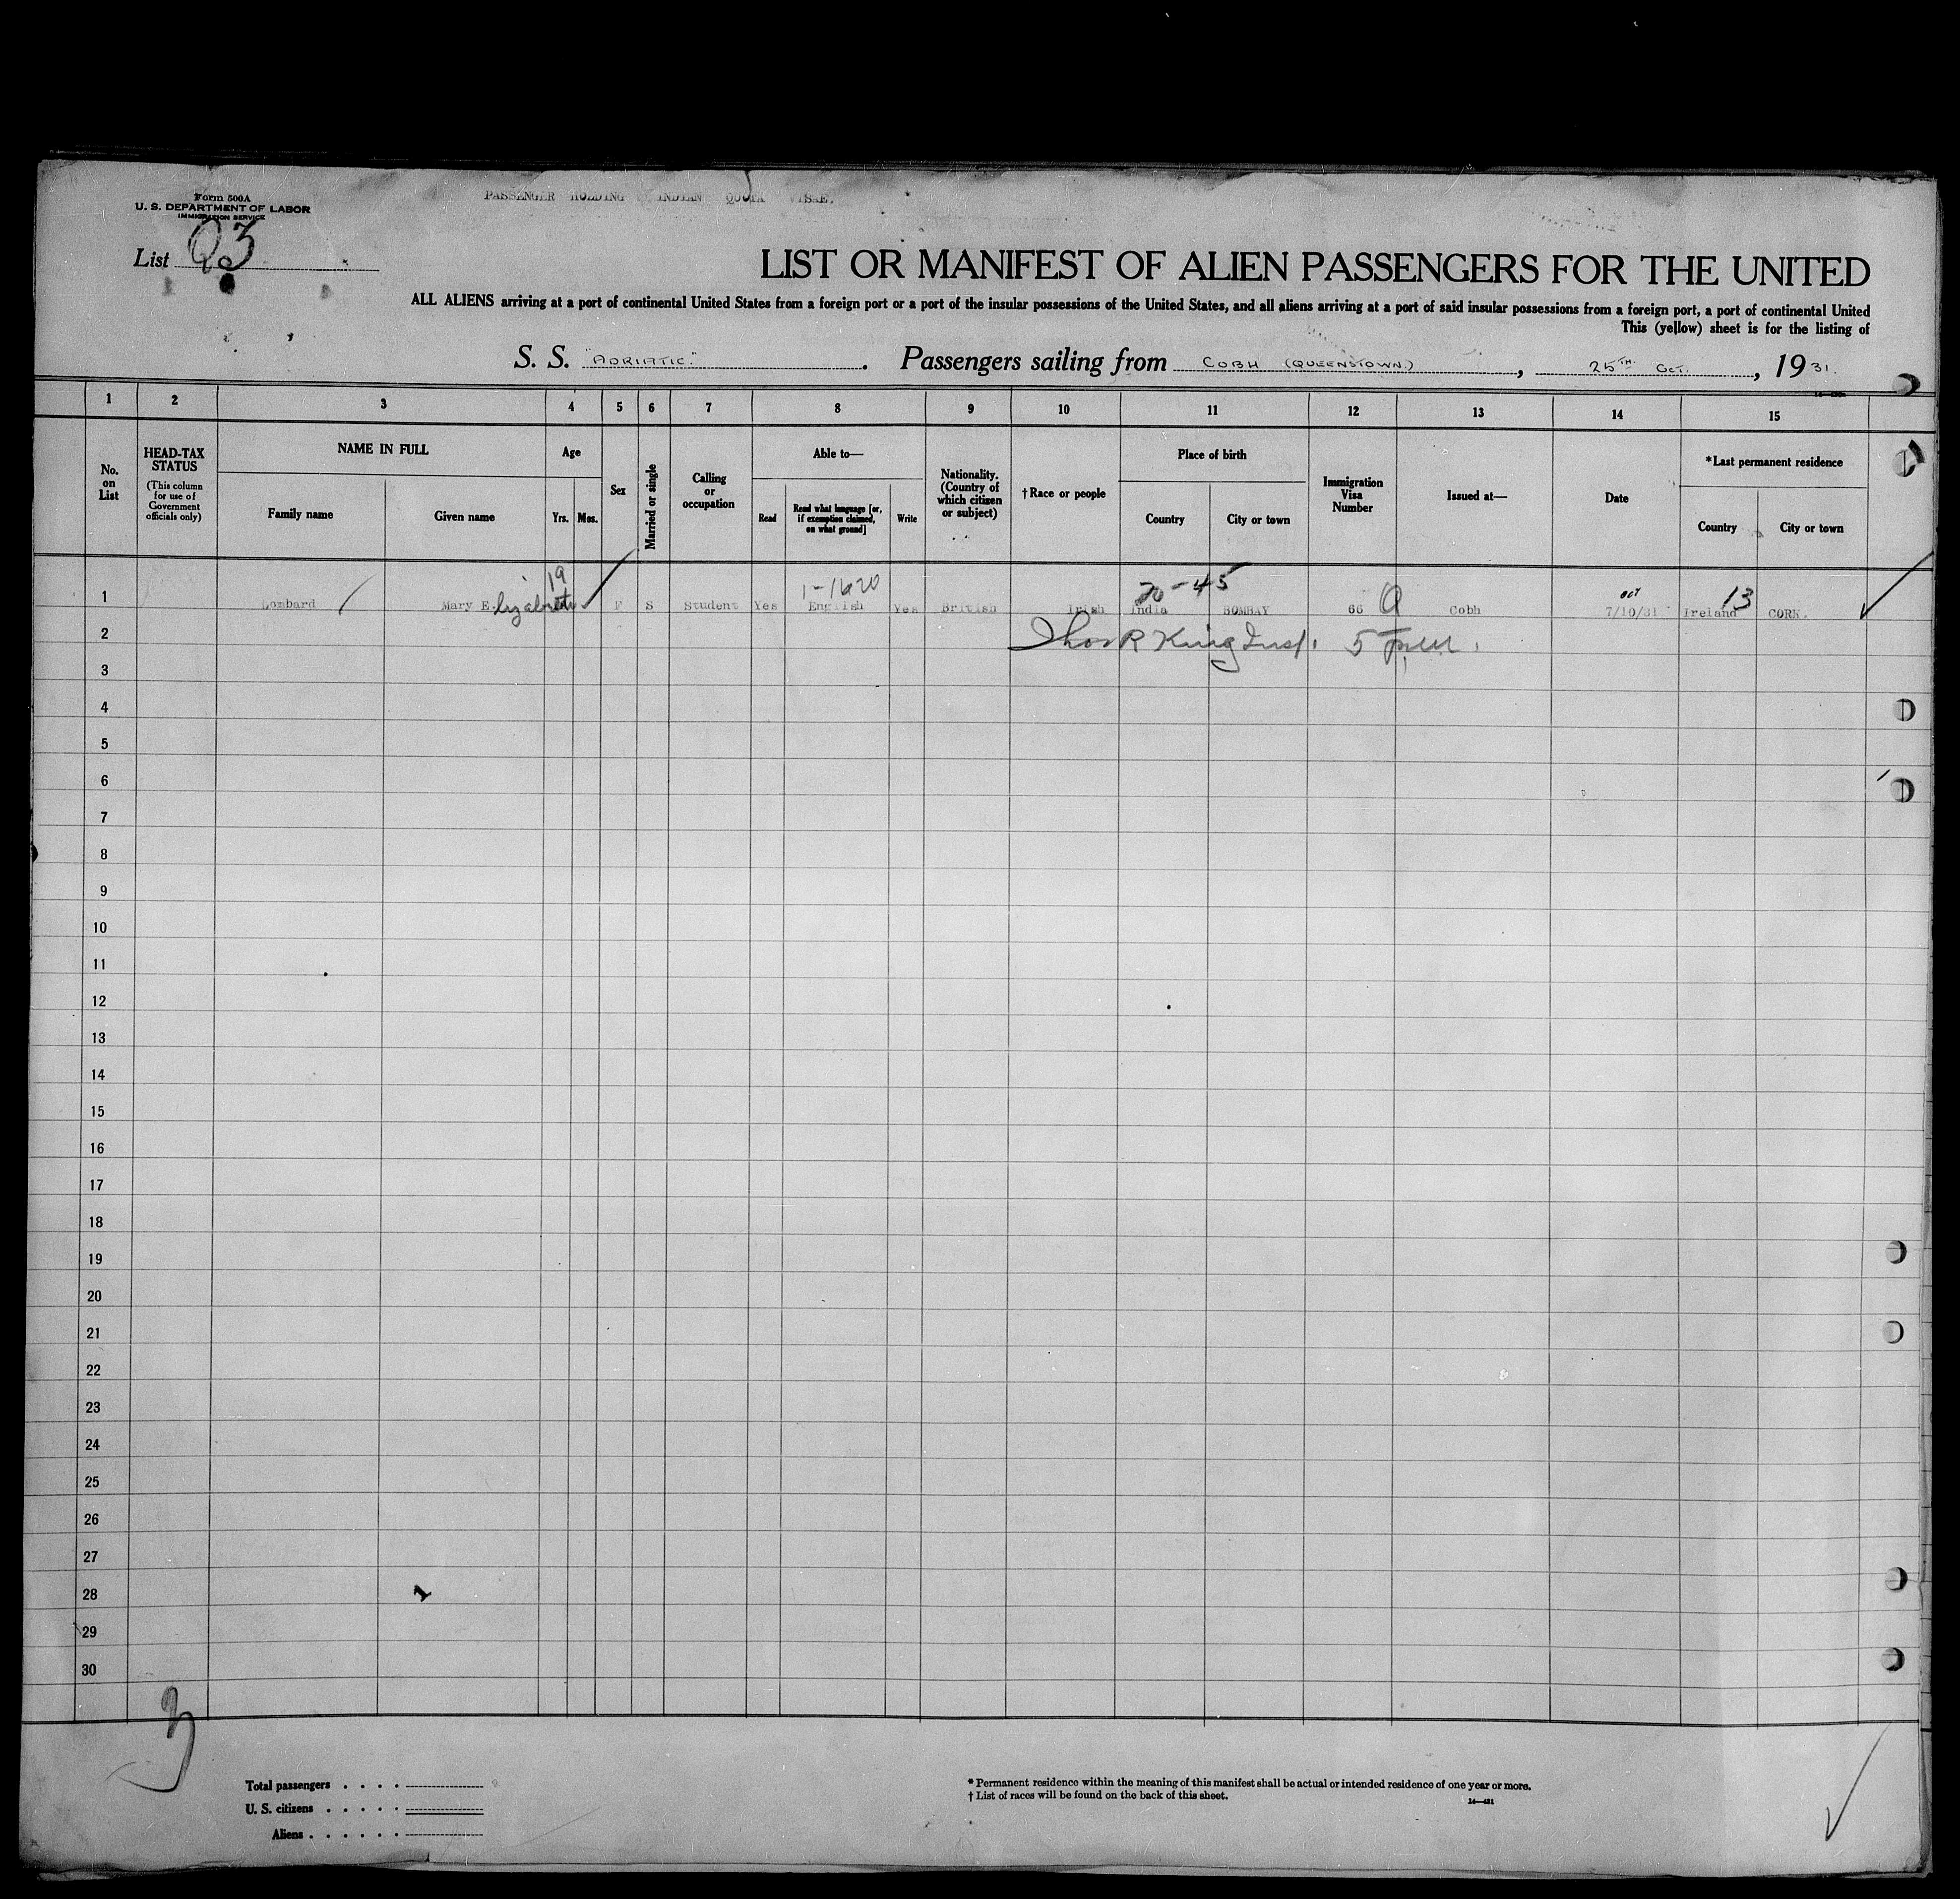 Form 500A
U. S. DEPARTMENT OF LABOR
IMMIGRATION SERVICE
PASSENGER HOLDING INDIAN QUOTA VISAE.
List
LIST OR MANIFEST OF ALIEN PASSENGERS FOR THE UNITED
ALL ALIENS arriving at a port of continental United States from a foreign port or a port of the insular possessions of the United States, and all aliens arriving at a port of said insular possessions from a foreign port, a port of continental United
This (yellow) sheet is for the listing of
S. S. "ADRIATIC". Passengers sailing from COBH (QUEENSTOWN), 25TH. OCT., 1931.
1 2 3 4 5 6 7 8 9 10 11 12 13 14 15
No. on List
HEAD-TAX STATUS
(This column for use of Government officials only)
NAME IN FULL
Family name
Given name
Age
Yrs.
Mos.
Sex
Married or single
Calling or occupation
Able to—
Read
Read what language [or, if exemption claimed, on what ground]
Write
Nationality. (Country of which citizen or subject)
†Race or people
Place of birth
Country
City or town
Immigration Visa Number
Issued at—
Date
*Last permanent residence
Country
City or town
19 1-1620 70-45 oct 13
1 Lombard Mary Elizabeth F S Student Yes English Yes British Irish India BOMBAY 66 Q Cobh 7/10/31 Ireland CORK.
2 Thos R King Insp.
3
4
5
6
7
8
9
10
11
12
13
14
15
16
17
18
19
20
21
22
23
24
25
26
27
28
29
30
3
Total passengers . . . .
U. S. citizens . . . . .
Aliens . . . . . .
* Permanent residence within the meaning of this manifest shall be actual or intended residence of one year or more.
† List of races will be found on the back of this sheet.